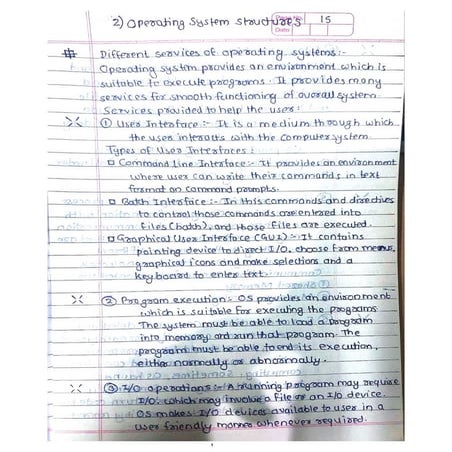 2) Operating System structures
Page No. 15
Date
# Different services of operating systems:-
Operating system provides an environment which is
suitable to execute programs. It provides many
services for smooth functioning of overall system.
Services provided to help the user:
① User Interface:- It is a medium through which
the user interacts with the Computer system.
Types of User Interfaces
□ Command Line Interface:- It provides an environment
where user can write their commands in text
format on command prompts.
□ Batch Interface:- In this commands and directives
to control those commands are entered into
files (batch), and those files are executed.
□ Graphical User Interface (GUI):- It contains
pointing device to direct I/O, choose from menus,
graphical icons and make selections and a
keyboard to enter text.
② Program execution:- OS provides an environment
which is suitable for executing the programs
The system must be able to load a program
into memory and run that program. The
program must be able to end its execution,
either normally or abnormally.
③ I/O operations:- A running program may require
I/O, which may involve a file or an I/O device.
OS makes I/O devices available to user in a
user friendly manner whenever required.